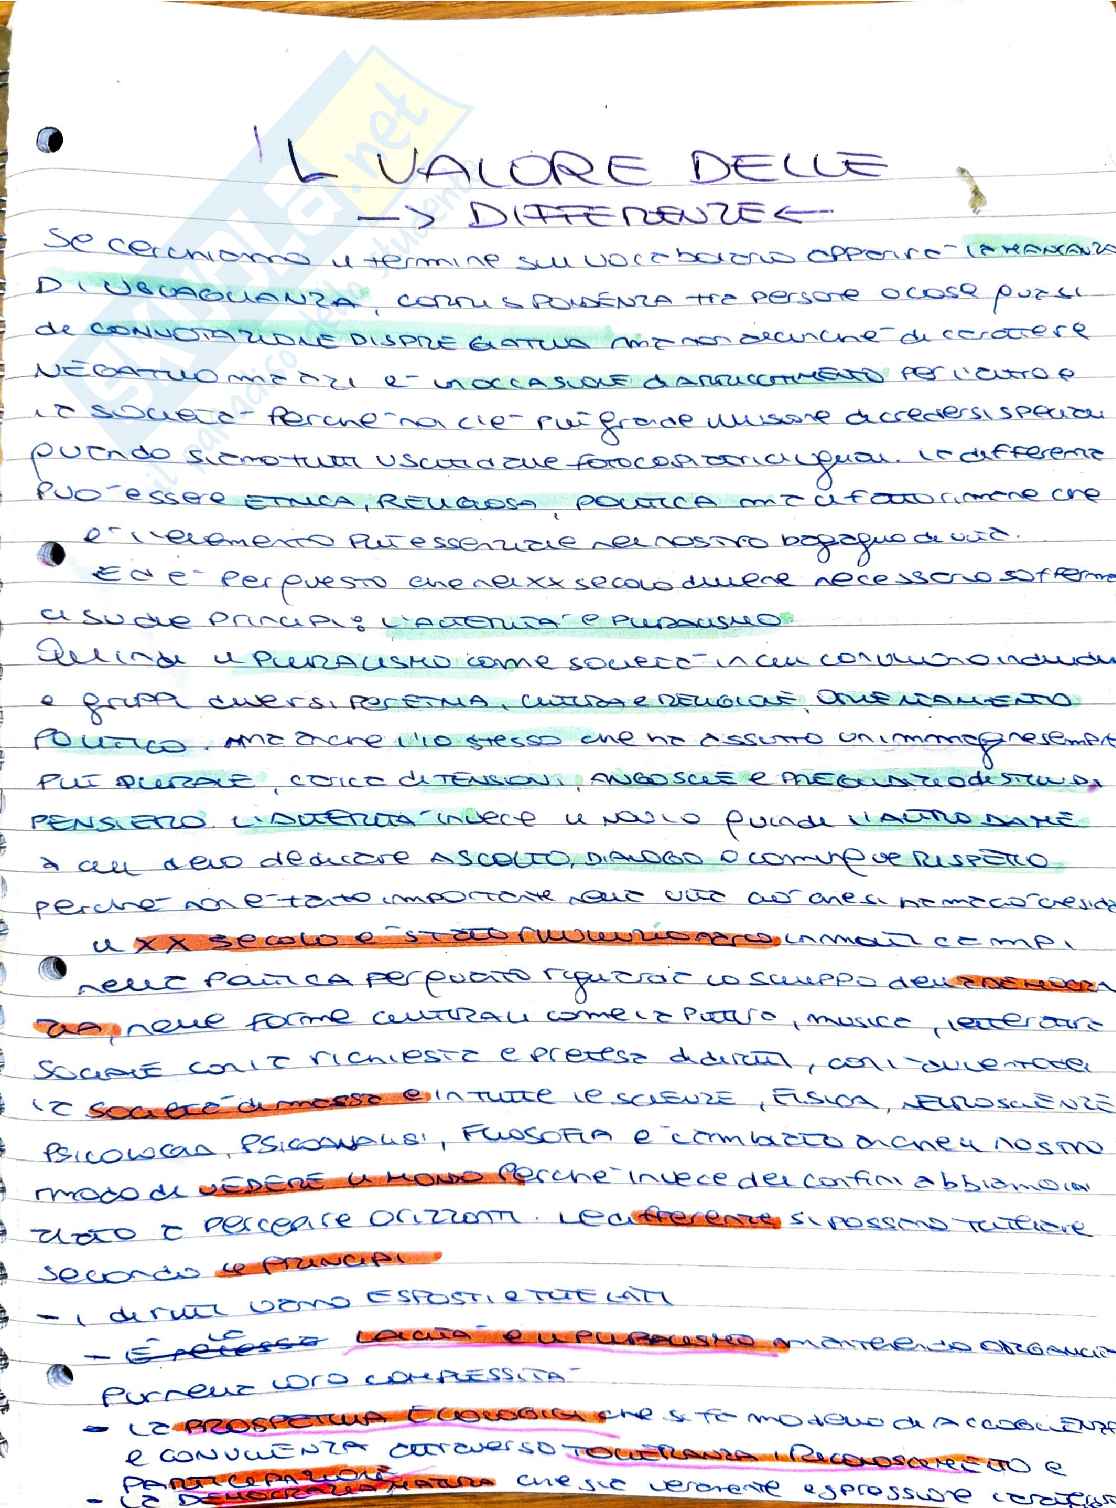 IL VALORE DELLE
-> DIFFERENZE <-
Se cerchiamo il termine sul vocabolario apparirà la MANCANZA
DI UGUAGLIANZA, CORRISPONDENZA tra persone o cose quasi
da CONNOTAZIONE DISPREGIATIVA ma non è anche di carattere
NEGATIVO ma anzi è un'OCCASIONE di ARRICCHIMENTO per l'altro e
la SOCIETÀ perché non c'è più grande illusione di credersi speciali
quando siamo tutti usciti da fotocopiatrici uguali. La differenza
PUÒ essere ETNICA, RELIGIOSA, POLITICA ma il fatto rimane che
è l'elemento più essenziale nel nostro bagaglio di vita.
Ed è per questo che nel XX secolo diviene necessario sofferma
ci su due principi: L'ALTERITÀ e PLURALISMO
Quindi il PLURALISMO come società in cui convivono individui
e gruppi diversi per ETNIA, CULTURA e RELIGIONE, ORIENTAMENTO
POLITICO. Ma anche l'io stesso che ha assunto un'immagine sempre
più PLURALE, carica di TENSIONI, ANGOSCIE e PREGIUDIZIO di STILI DI
PENSIERO. L'ALTERITÀ invece è quindi L'ALTRO DA ME
a cui devo dedicare ASCOLTO, DIALOGO o comunque RISPETTO
perché non è tanto importante nella vita ciò che si ha ma ciò che si dà
il XX secolo è stato rivoluzionario in molti campi
nella POLITICA per quanto riguarda lo sviluppo della DEMOCRA
ZIA, nelle forme culturali come la pittura, musica, letteratura
SOCIALE con la richiesta e pretesa di diritti, con l'avvento del
la società di massa e in tutte le SCIENZE, FISICA, NEUROSCIENZE
PSICOLOGIA, PSICOANALISI, FILOSOFIA è cambiato anche il nostro
modo di VEDERE il MONDO perché invece dei confini abbiamo in
ziato a percepire orizzonti. Le differenze si possono tutelare
secondo 4 PRINCIPI
- i diritti vanno ESPOSTI e TUTELATI
- la LAICITÀ e il PLURALISMO mantenendo ORGANICITÀ
pur nella loro COMPLESSITÀ
- la PROSPETTIVA ECOLOGICA che si fa modello di ACCOGLIENZA
e CONVIVENZA attraverso TOLLERANZA, RICONOSCIMENTO e
PARTECIPAZIONE
- la DEMOCRAZIA MATURA che sia veramente espressione
SKUOLA.net
il paradiso dello studente